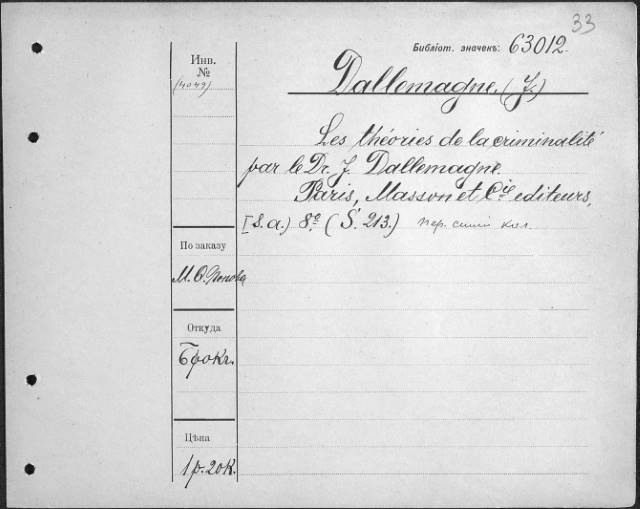 33
Библіот. значекъ: 63012.
Инв.
№
(4049)
Dallemagne. (J.)
Les théories de la criminalité
par le Dr. J. Dallemagne.
Paris, Masson et Cie editeurs,
[S. a.) 8º (S. 213.) пер. синій кол.
По заказу
М. О. Попова
Откуда
Брокг.
Цѣна
1 р. 20 к.